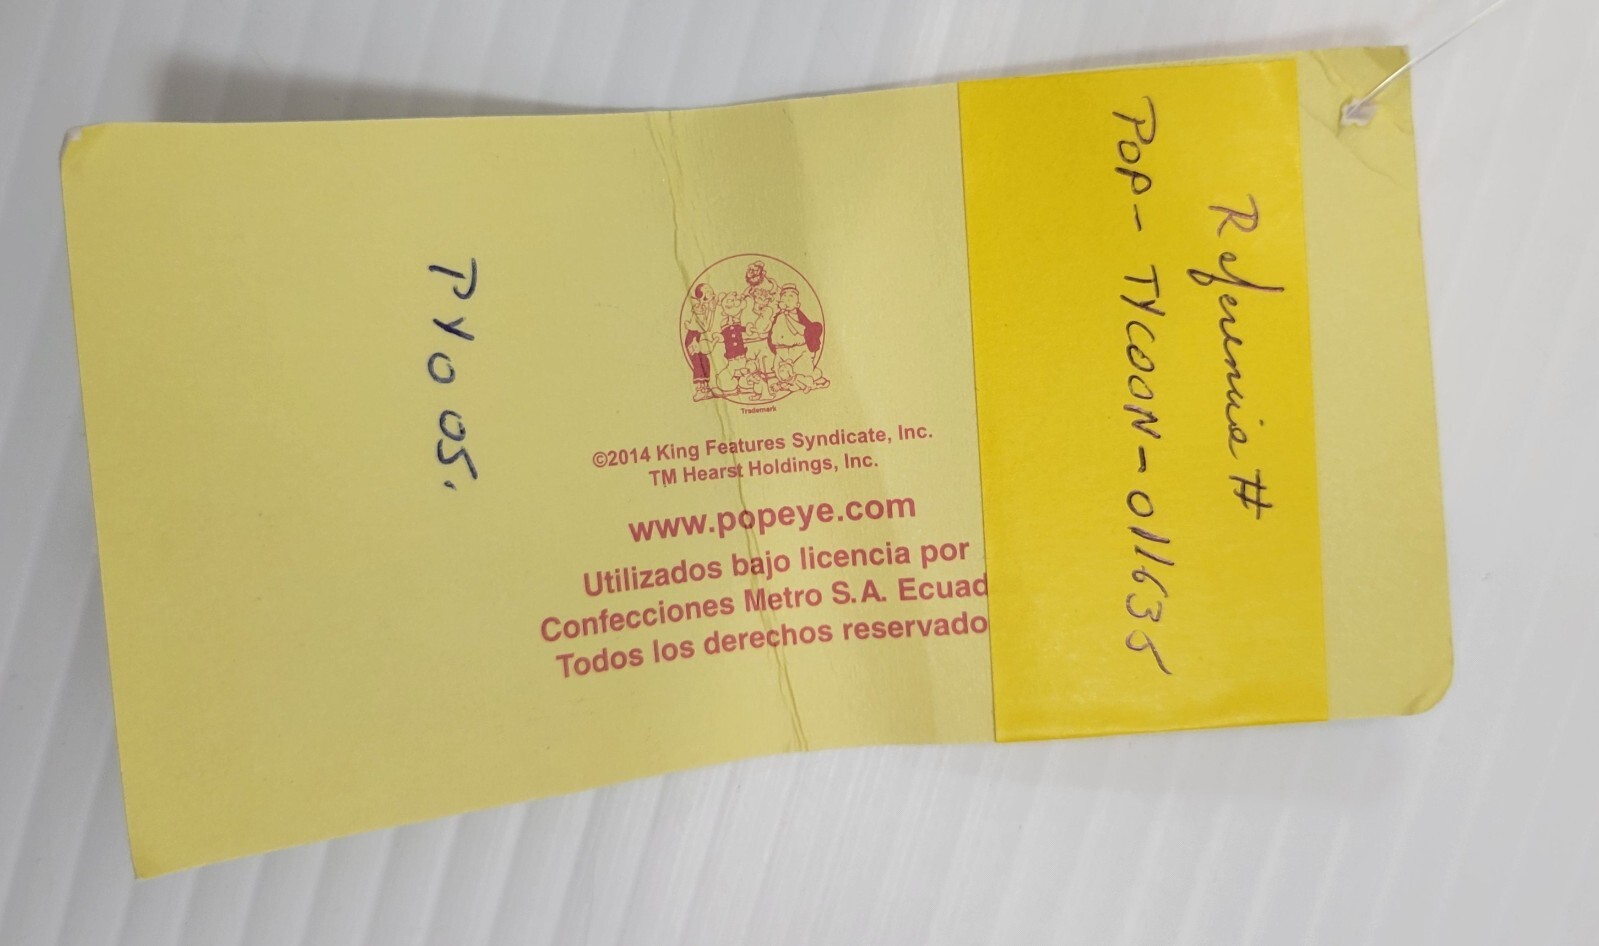 Referencia #
POP-TYCOON-011635
Trademark
©2014 King Features Syndicate, Inc.
TM Hearst Holdings, Inc.
www.popeye.com
Utilizados bajo licencia por
Confecciones Metro S.A. Ecuad
Todos los derechos reservado
TY005.